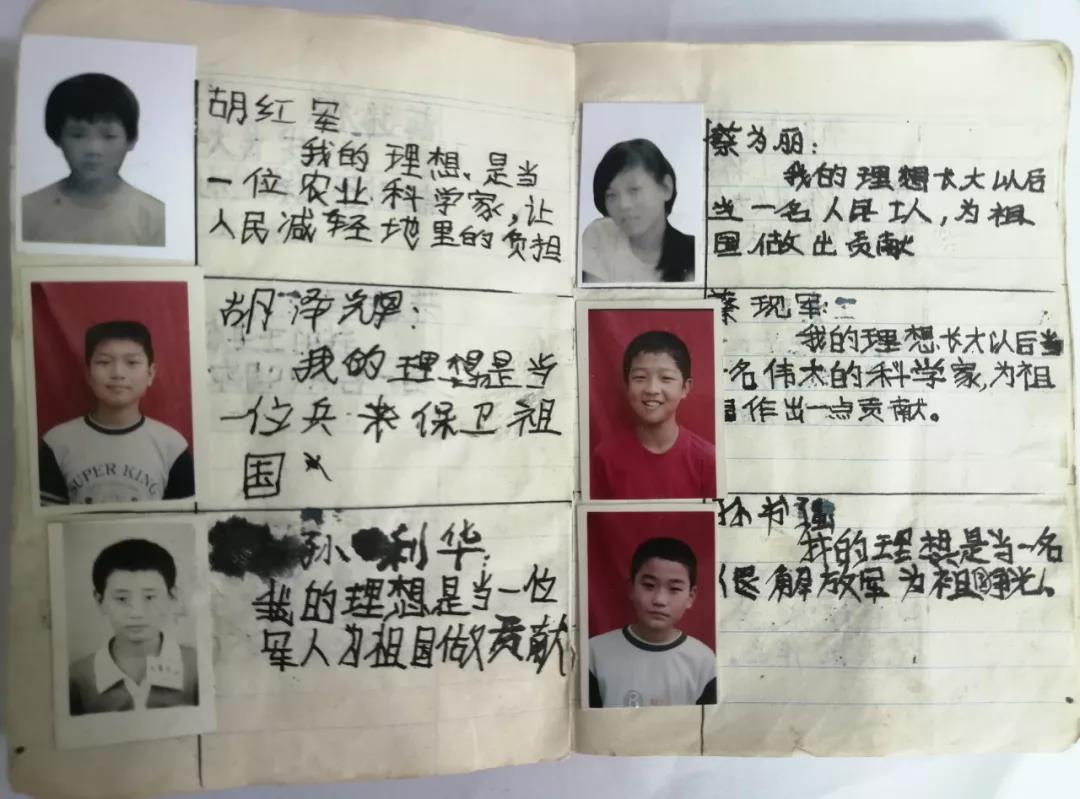 胡红军
我的理想、是当
一位农业科学家,让
人民减轻地里的负担
胡泽光:
我的理想是当
一位兵来保卫祖
国
SUPER KING
孙利华:
我的理想是当一位
军人为祖国做贡献
蔡为丽:
我的理想长大以后
当一名人民工人,为祖
国做出贡献
蔡现军:
我的理想长大以后当
名伟大的科学家,为祖
作出一点贡献。
孙书强
我的理想是当一名
解放军为祖国